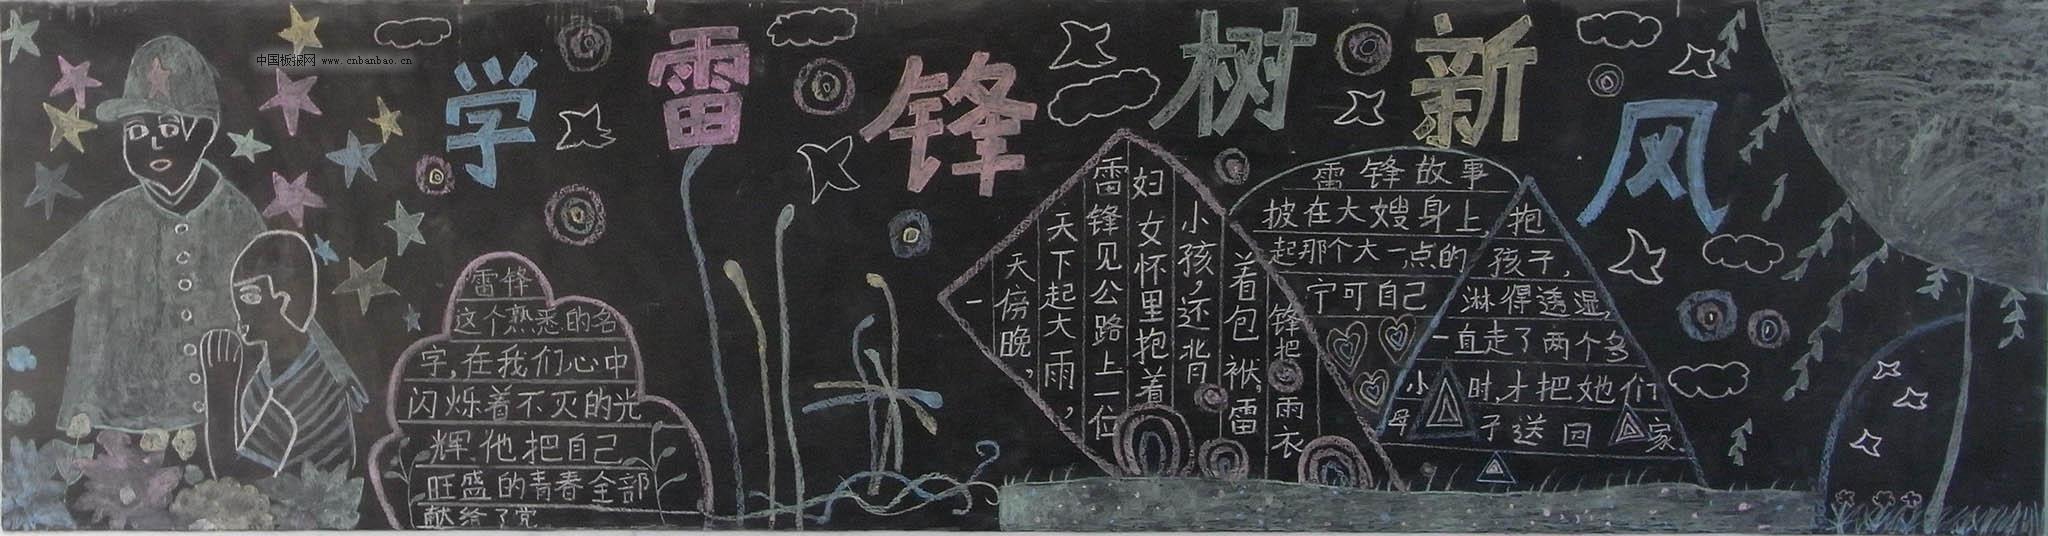 中国板报网 www.cnbanbao.cn
学雷锋树新风
雷锋
这个熟悉的名
字,在我们心中
闪烁着不灭的光
辉他把自己
旺盛的青春全部
献给了党
一
天傍晚,
天下起大雨,
雷锋见公路上一位
妇女怀里抱着
小孩,还背
着包袱,雷
锋把雨衣
雷锋故事
披在大嫂身上,抱
起那个大一点的孩子,
宁可自己淋得透湿,
一直走了两个多
小时,才把她们
母子送回家